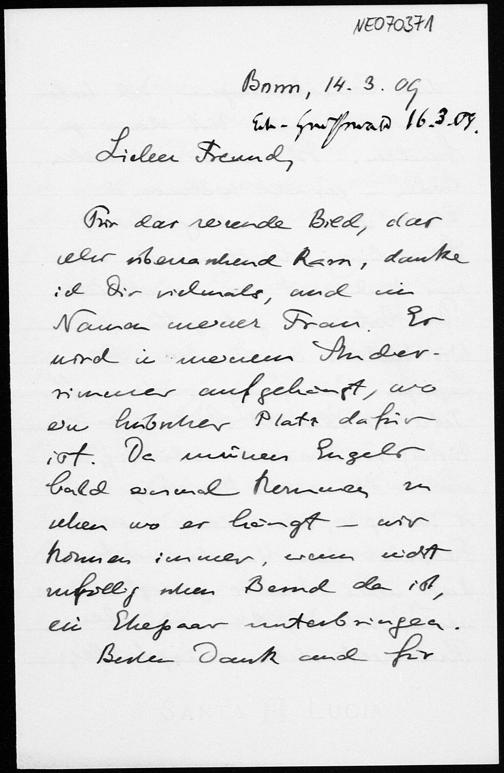 NE070371
Bonn, 14. 3. 09
16.3.09.
Lieber Freund,
Für das reizende Bild, das
sehr überraschend kam, danke
ich Dir vielmals, auch im
Namen meiner Frau. Es
wird in meinem Studier-
zimmer aufgehängt, wo
ein hübscher Platz dafür
ist. Da müssen Engels
bald einmal kommen zu
sehen wo er hängt – wir
können immer, wenn nicht
zufällig schon Besuch da ist,
ein Ehepaar unterbringen.
Besten Dank auch für
SANTA LUCIA